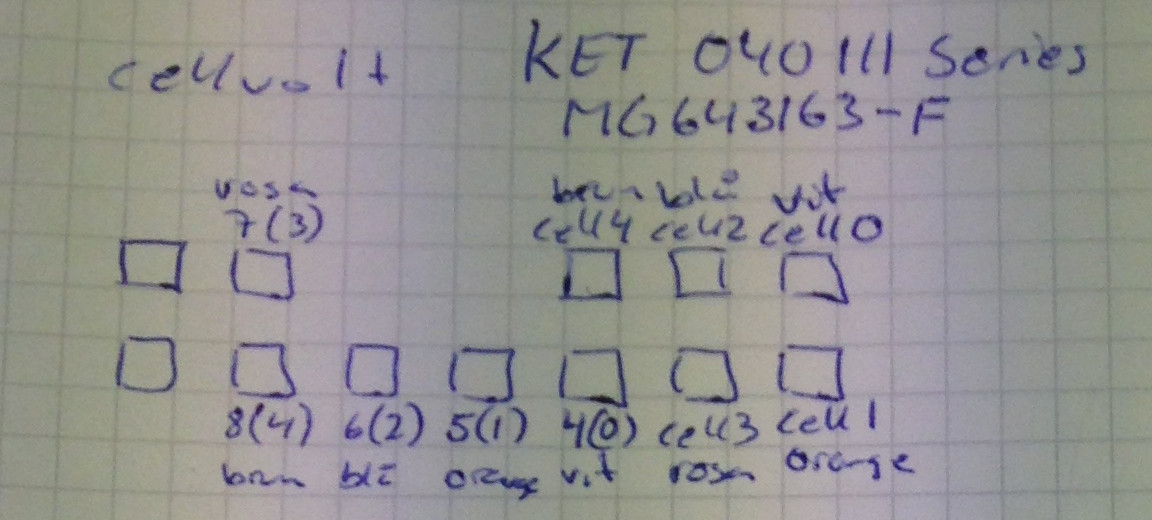 cellvolt KET 040 III Series
MG643163-F
rosa brun blå vit
7(3) cell4 cell2 cell0
8(4) 6(2) 5(1) 4(0) cell3 cell1
brun blå orange vit rosa orange